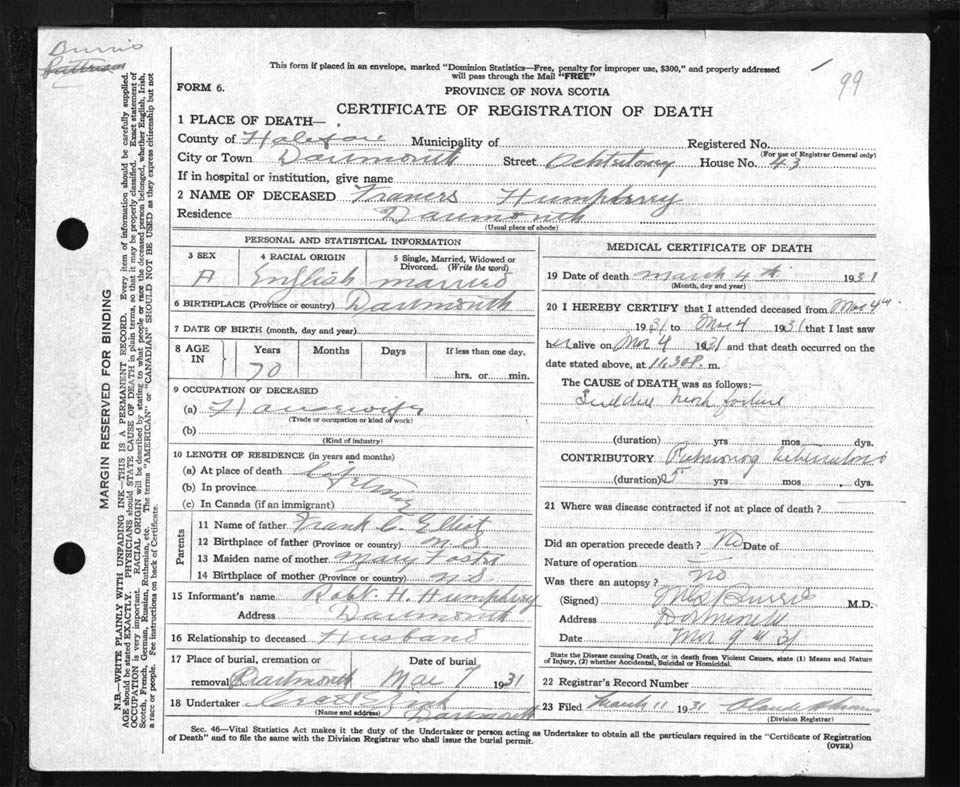 Burris
This form if placed in an envelope, marked "Dominion Statistics—Free, penalty for improper use, $300," and properly addressed
will pass through the Mail "FREE"
99
FORM 6.
PROVINCE OF NOVA SCOTIA
CERTIFICATE OF REGISTRATION OF DEATH
1 PLACE OF DEATH—
County of Halifax Municipality of Registered No.
(For use of Registrar General only)
City or Town Dartmouth Street House No. 43
If in hospital or institution, give name
2 NAME OF DECEASED Frances Humphrey
Residence Dartmouth
(Usual place of abode)
MARGIN RESERVED FOR BINDING
N.B.—WRITE PLAINLY WITH UNFADING INK—THIS IS A PERMANENT RECORD. Every item of information should be carefully supplied.
AGE should be stated EXACTLY. PHYSICIANS should STATE CAUSE OF DEATH in plain terms, so that it may be properly classified. Exact statement of
OCCUPATION is very important. RACIAL ORIGIN will be described by stating to what people or race the deceased person belonged, whether English, Irish,
Scotch, French, German, Russian, Ruthenian, etc. The terms "AMERICAN" or "CANADIAN" SHOULD NOT BE USED as they express citizenship but not
a race or people. See instructions on back of Certificate.
PERSONAL AND STATISTICAL INFORMATION
3 SEX
4 RACIAL ORIGIN English
5 Single, Married, Widowed or
Divorced. (Write the word)
married
6 BIRTHPLACE (Province or country) Dartmouth
7 DATE OF BIRTH (month, day and year)
8 AGE IN Years Months Days If less than one day,
70 hrs. or min.
9 OCCUPATION OF DECEASED
(a) Housewife
(Trade or occupation or kind of work)
(b)
(Kind of industry)
10 LENGTH OF RESIDENCE (in years and months)
(a) At place of death Lifetime
(b) In province
(c) In Canada (if an immigrant)
Parents
11 Name of father Frank C. Elliot
12 Birthplace of father (Province or country) N.S.
13 Maiden name of mother Mary Foster
14 Birthplace of mother (Province or country) N.S.
15 Informant's name Robt. H. Humphrey
Address Dartmouth
16 Relationship to deceased Husband
17 Place of burial, cremation or Date of burial
removal Dartmouth Mar 7 1931
18 Undertaker
(Name and address) Dartmouth
MEDICAL CERTIFICATE OF DEATH
19 Date of death March 4th 1931
(Month, day and year)
20 I HEREBY CERTIFY that I attended deceased from Mar 4th
1931 to Mar 4 1931 that I last saw
her alive on Mar 4 1931 and that death occurred on the
date stated above, at 11.30 P. m.
The CAUSE of DEATH was as follows:—
Sudden heart failure
(duration) yrs mos dys.
CONTRIBUTORY Pulmonary tuberculosis
(duration) 5 yrs mos. dys.
21 Where was disease contracted if not at place of death?
Did an operation precede death? No Date of
Nature of operation
Was there an autopsy? No
(Signed) Burris M.D.
Address Dartmouth
Date Mar 9th 31
State the Disease causing Death, or in death from Violent Causes, state (1) Means and Nature
of Injury, (2) whether Accidental, Suicidal or Homicidal.
22 Registrar's Record Number
23 Filed March 11 1931
(Division Registrar)
Sec. 46—Vital Statistics Act makes it the duty of the Undertaker or person acting as Undertaker to obtain all the particulars required in the "Certificate of Registration
of Death" and to file the same with the Division Registrar who shall issue the burial permit.
(OVER)